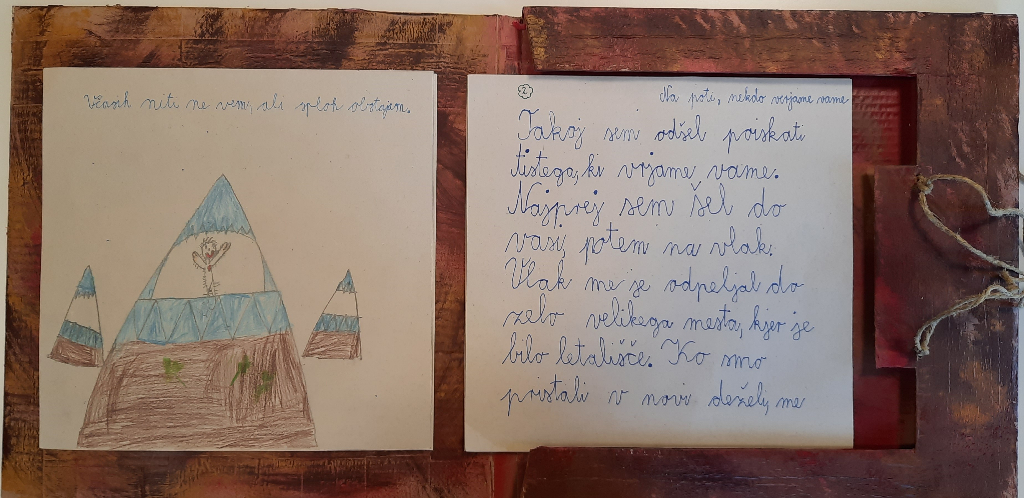 Včasih niti ne vem, ali sploh obstajam.
2
Na poti, nekdo verjame vame
Takoj sem odšel poiskati
tistega, ki vrjame vame.
Najprej sem šel do
vasi, potem na vlak.
Vlak me je odpeljal do
zelo velikega mesta, kjer je
bilo letališče. Ko smo
pristali v novi deželi, me